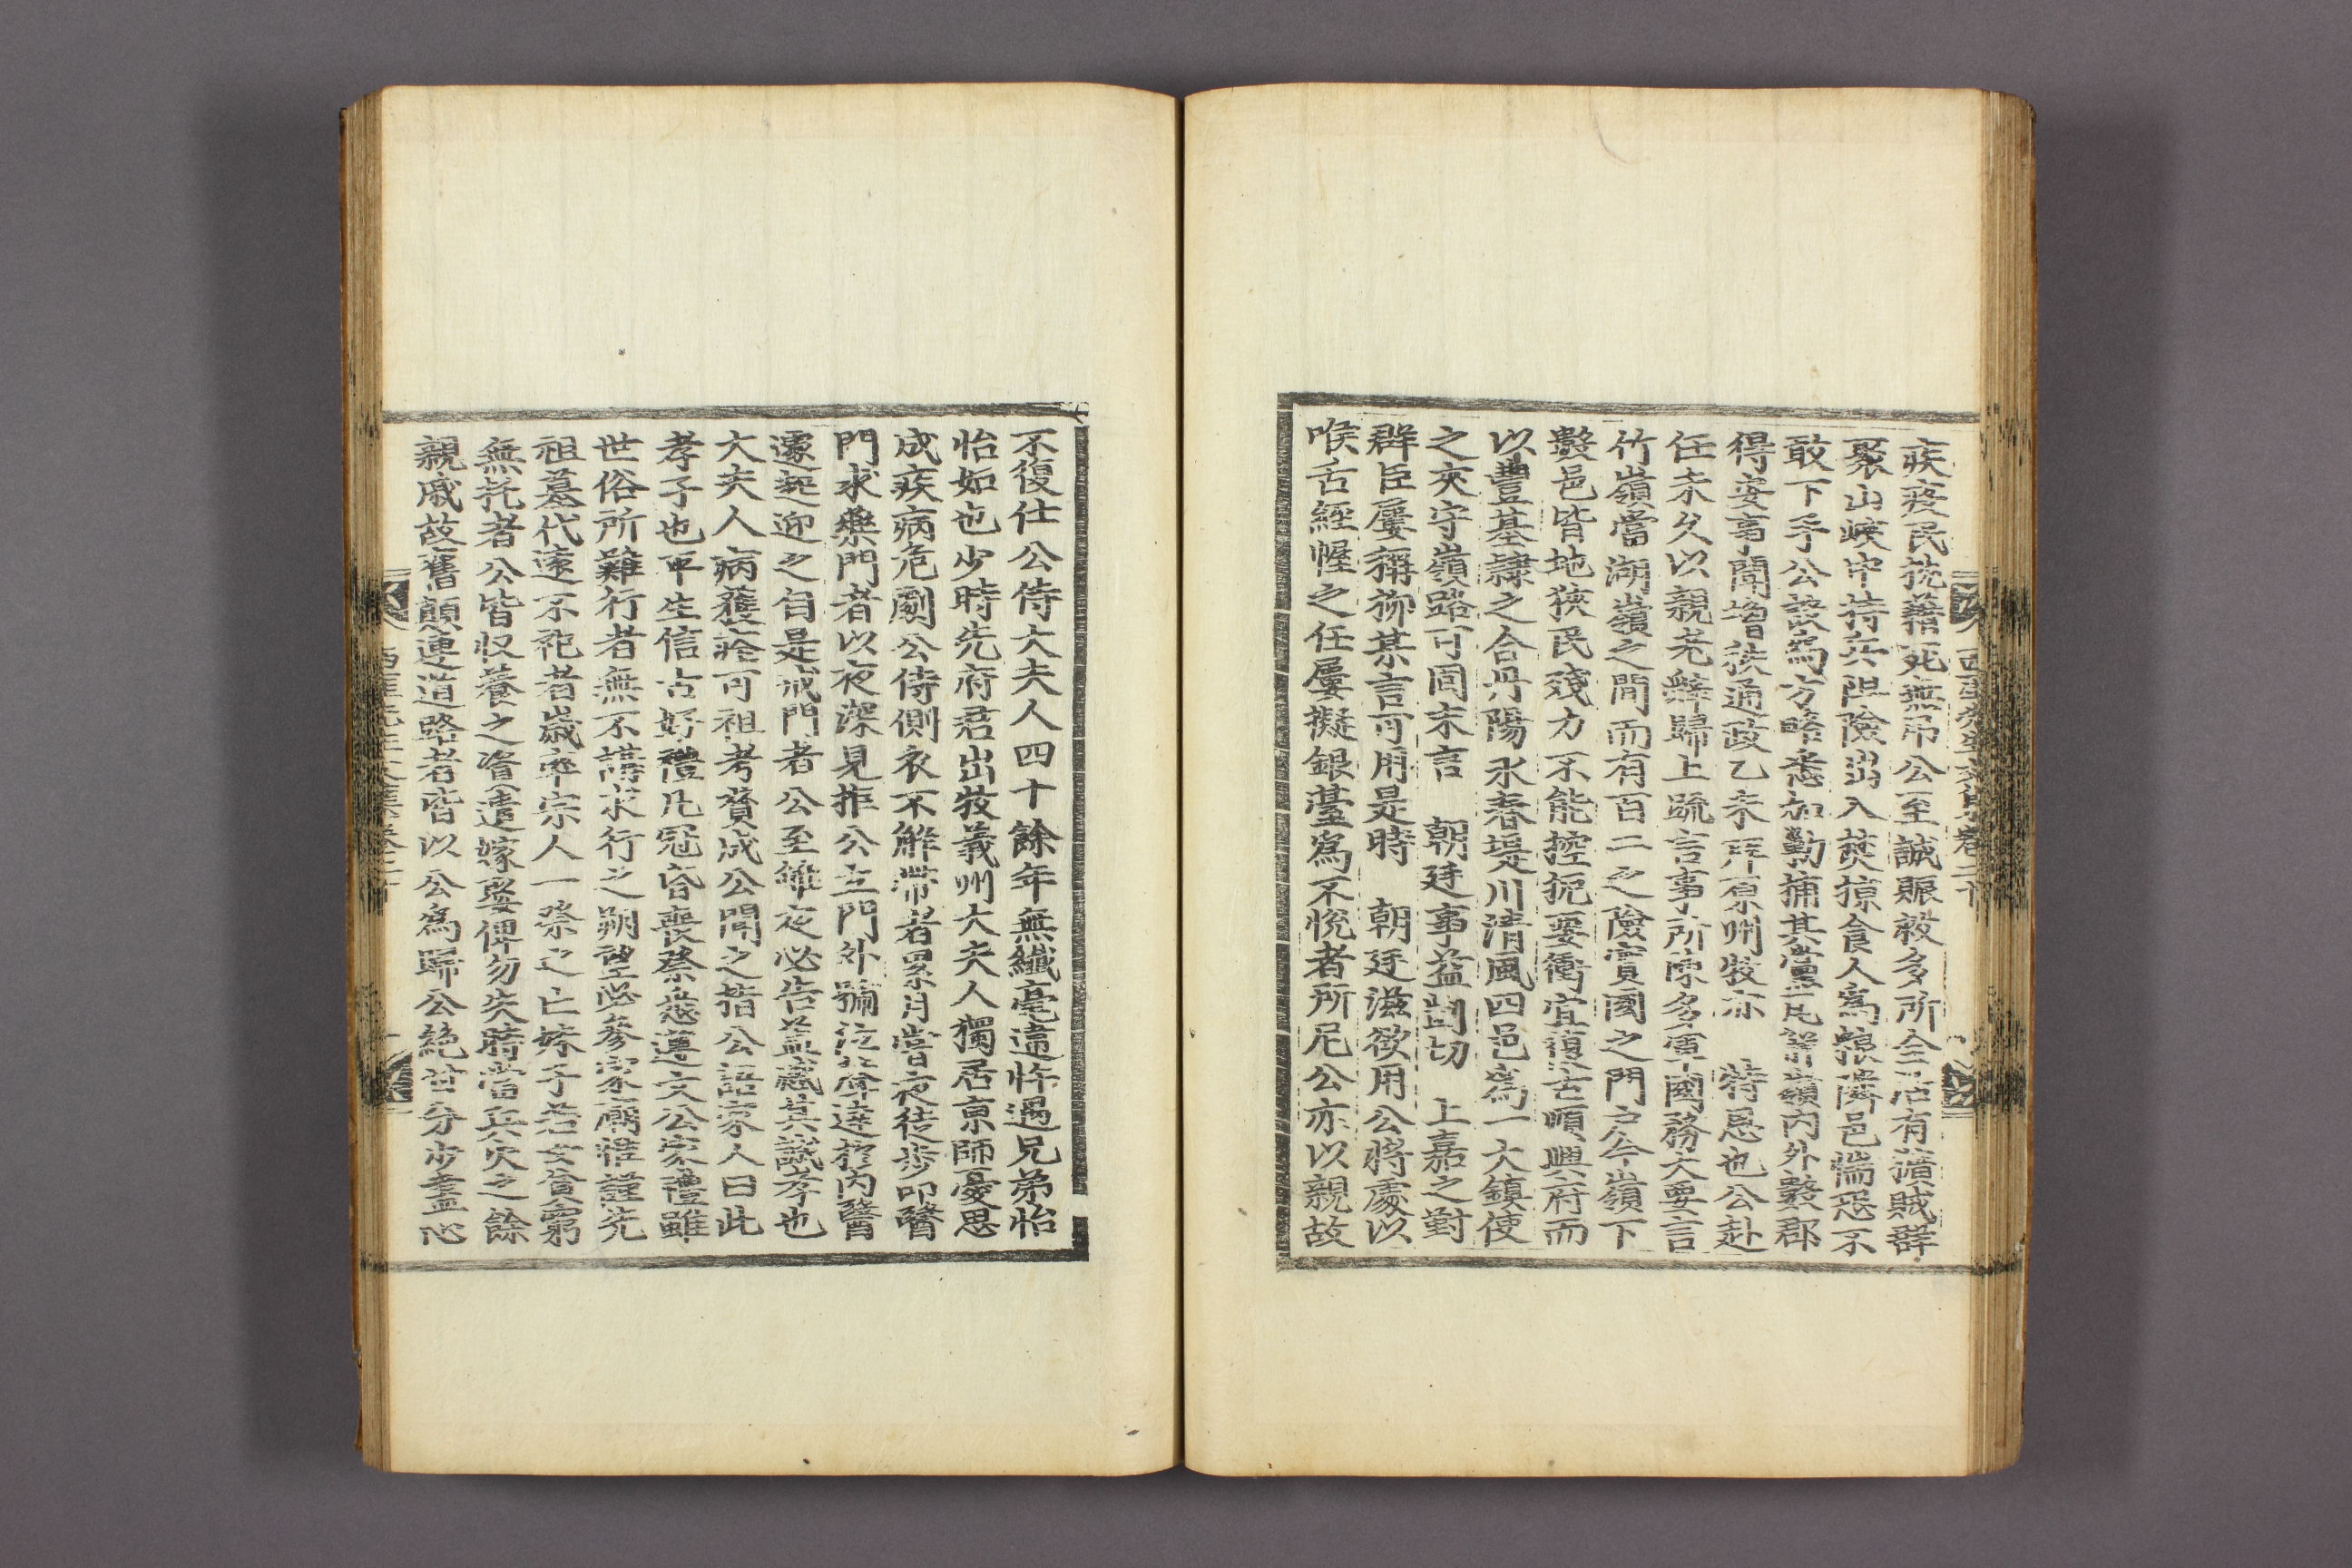 疾疫民荒藉死無弔公至誠賑救多所全活有獷賊群
聚山峽中持兵阻險出入焚掠食人爲粮隣邑惴恐不
敢下手公設爲方略悉加勦捕其黨瓦解嶺內外數郡
得安事聞增秩通政乙未拜原州牧亦 特恩也公赴
任未久以親老辭歸上疏言事所陳多軍國務大要言
竹嶺當湖嶺之間而有百二之險實國之門户今嶺下
數邑皆地狹民殘力不能控扼要衝宜復古順興府而
以豐基隷之合丹陽永春堤川淸風四邑爲一大鎭使
之夾守嶺路可固末言 朝廷事益剴切 上嘉之對
群臣屢稱柳某言可用是時 朝廷滋欲用公將處以
喉舌經幄之任屢擬銀臺爲不悅者所尼公亦以親故
西厓先生文集卷二十
不復仕公侍大夫人四十餘年無纖毫違忤遇兄弟怡
怡如也少時先府君出牧義州大夫人獨居京師憂思
成疾病危劇公侍側衣不解帶者累月嘗夜徒步叩醫
門求藥門者以夜深見拒公立門外號泣聲達於內醫
遽起迎之自是戒門者公至雖夜必告盖感其誠孝也
大夫人病獲痊可祖考贊成公聞之指公語家人曰此
孝子也平生信古好禮凡冠昏喪祭悉遵文公家禮雖
世俗所難行者無不講求行之朔望必參家廟惟謹先
祖墓代遠不祀者歲率宗人一祭之亡姊子若女貧窮
無托者公皆收養之資遣嫁娶俾勿失時當兵火之餘
親戚故舊顚連道路者皆以公爲歸公絶甘分少盡心
西厓先生文集卷二十